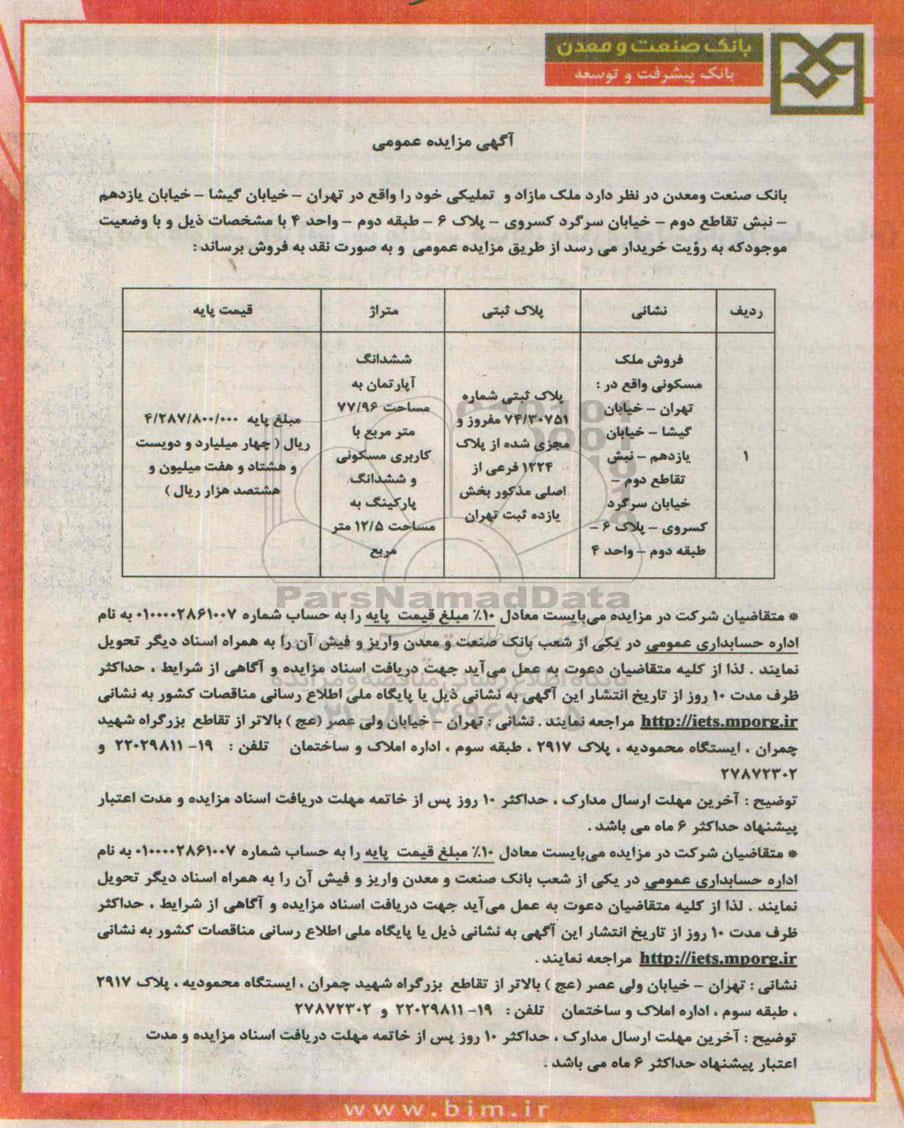 بانک صنعت و معدن
بانک پیشرفت و توسعه
آگهی مزایده عمومی
بانک صنعت ومعدن در نظر دارد ملک مازاد و تملیکی خود را واقع در تهران – خیابان گیشا – خیابان یازدهم
– نبش تقاطع دوم – خیابان سرگرد کسروی – پلاک ۶ – طبقه دوم – واحد ۴ با مشخصات ذیل و با وضعیت
موجودکه به رؤیت خریدار می رسد از طریق مزایده عمومی و به صورت نقد به فروش برساند :
ردیف
نشانی
پلاک ثبتی
متراژ
قیمت پایه
۱
فروش ملک
مسکونی واقع در :
تهران – خیابان
گیشا – خیابان
یازدهم – نبش
تقاطع دوم –
خیابان سرگرد
کسروی – پلاک ۶ –
طبقه دوم – واحد ۴
پلاک ثبتی شماره
۷۴/۳۰۷۵۱ مفروز و
مجزی شده از پلاک
۱۲۲۴ فرعی از
اصلی مذکور بخش
یازده ثبت تهران
ششدانگ
آپارتمان به
مساحت ۷۷/۹۶
متر مربع با
کاربری مسکونی
و ششدانگ
پارکینگ به
مساحت ۱۲/۵ متر
مربع
مبلغ پایه ۴/۲۸۷/۸۰۰/۰۰۰
ریال ( چهار میلیارد و دویست
و هشتاد و هفت میلیون و
هشتصد هزار ریال )
ParsNamadData
* متقاضیان شرکت در مزایده می‌بایست معادل ۱۰٪ مبلغ قیمت پایه را به حساب شماره ۰۱۰۰۰۰۲۸۶۱۰۰۷ به نام
اداره حسابداری عمومی در یکی از شعب بانک صنعت و معدن واریز و فیش آن را به همراه اسناد دیگر تحویل
نمایند . لذا از کلیه متقاضیان دعوت به عمل می‌آید جهت دریافت اسناد مزایده و آگاهی از شرایط ، حداکثر
ظرف مدت ۱۰ روز از تاریخ انتشار این آگهی به نشانی ذیل یا پایگاه ملی اطلاع رسانی مناقصات کشور به نشانی
http://iets.mporg.ir مراجعه نمایند . نشانی : تهران – خیابان ولی عصر (عج ) بالاتر از تقاطع بزرگراه شهید
چمران ، ایستگاه محمودیه ، پلاک ۲۹۱۷ ، طبقه سوم ، اداره املاک و ساختمان تلفن : ۱۹- ۲۲۰۲۹۸۱۱ و
۲۷۸۷۲۳۰۲
توضیح : آخرین مهلت ارسال مدارک ، حداکثر ۱۰ روز پس از خاتمه مهلت دریافت اسناد مزایده و مدت اعتبار
پیشنهاد حداکثر ۶ ماه می باشد .
* متقاضیان شرکت در مزایده می‌بایست معادل ۱۰٪ مبلغ قیمت پایه را به حساب شماره ۰۱۰۰۰۰۲۸۶۱۰۰۷ به نام
اداره حسابداری عمومی در یکی از شعب بانک صنعت و معدن واریز و فیش آن را به همراه اسناد دیگر تحویل
نمایند . لذا از کلیه متقاضیان دعوت به عمل می‌آید جهت دریافت اسناد مزایده و آگاهی از شرایط ، حداکثر
ظرف مدت ۱۰ روز از تاریخ انتشار این آگهی به نشانی ذیل یا پایگاه ملی اطلاع رسانی مناقصات کشور به نشانی
http://iets.mporg.ir مراجعه نمایند .
نشانی : تهران – خیابان ولی عصر (عج ) بالاتر از تقاطع بزرگراه شهید چمران ، ایستگاه محمودیه ، پلاک ۲۹۱۷
، طبقه سوم ، اداره املاک و ساختمان تلفن : ۱۹- ۲۲۰۲۹۸۱۱ و ۲۷۸۷۲۳۰۲
توضیح : آخرین مهلت ارسال مدارک ، حداکثر ۱۰ روز پس از خاتمه مهلت دریافت اسناد مزایده و مدت
اعتبار پیشنهاد حداکثر ۶ ماه می باشد .
www.bim.ir